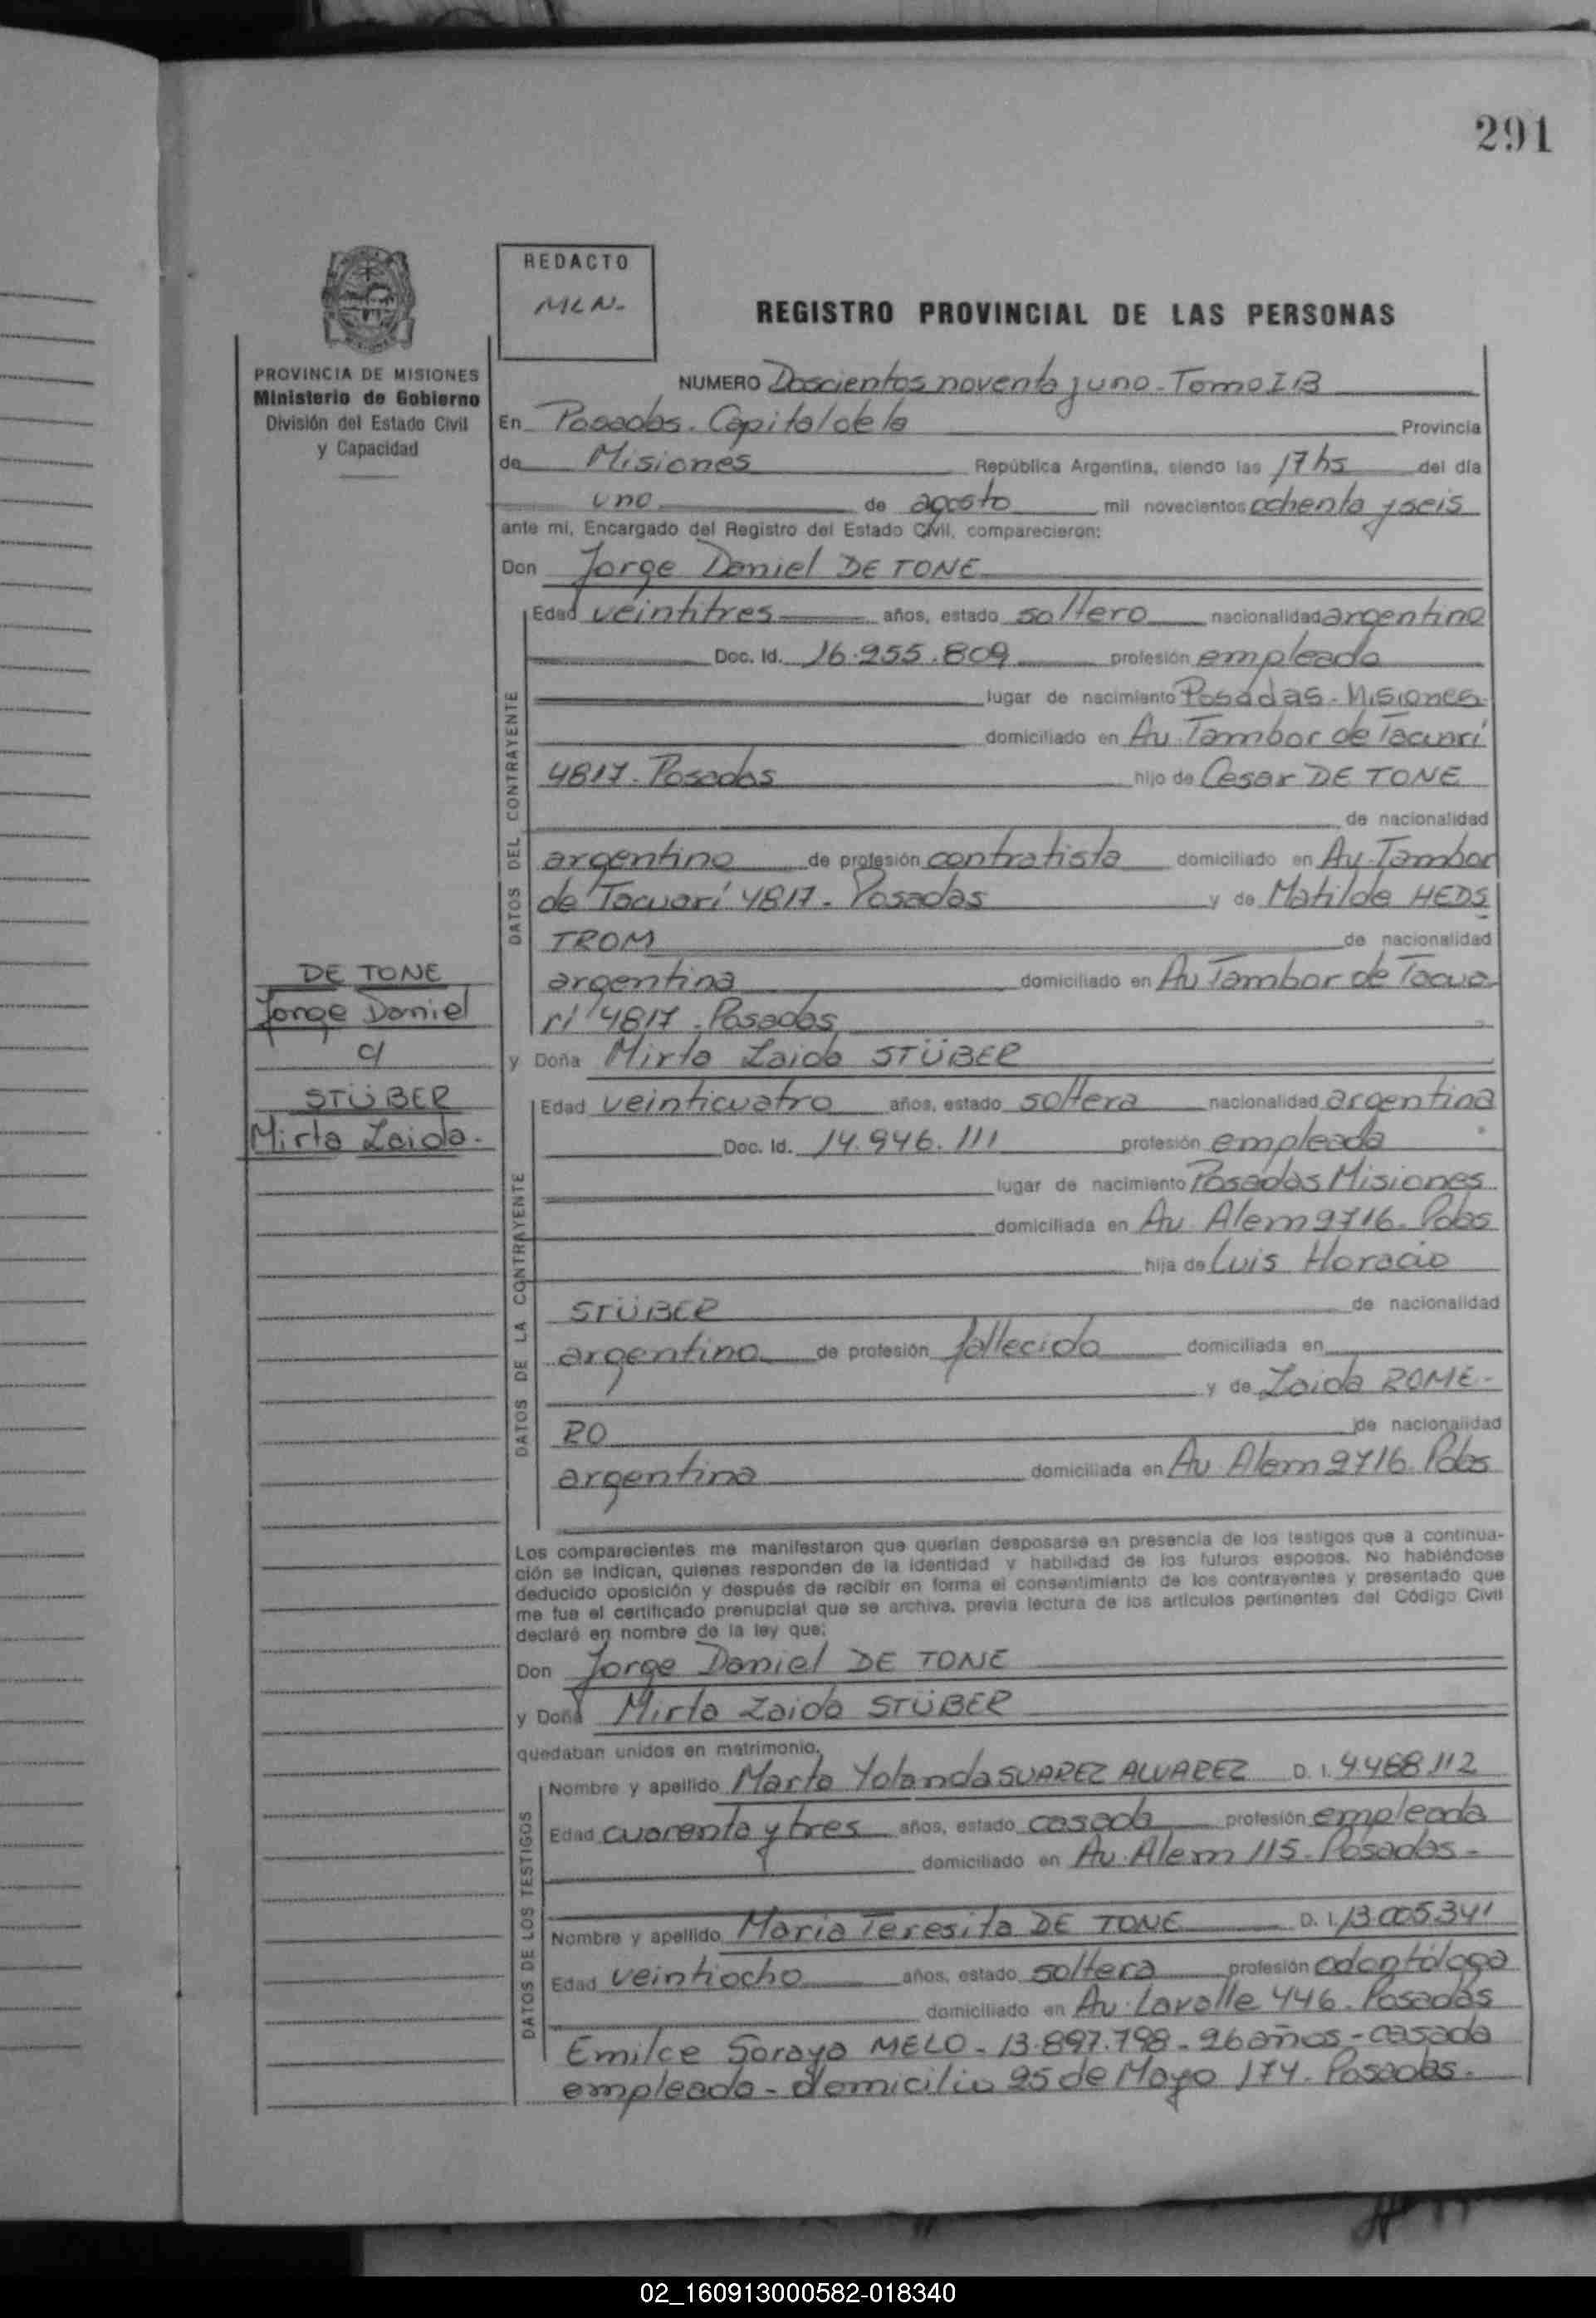 291
REDACTO
MLN-
REGISTRO PROVINCIAL DE LAS PERSONAS
PROVINCIA DE MISIONES
Ministerio de Gobierno
División del Estado Civil
y Capacidad
NUMERO Doscientos noventa y uno - Tomo I B
En Posadas. Capital de la Provincia
de Misiones República Argentina, siendo las 17 hs del día
uno de agosto mil novecientos ochenta y seis
ante mi, Encargado del Registro del Estado Civil, comparecieron:
Don Jorge Daniel DE TONE
DATOS DEL CONTRAYENTE
Edad veintitres años, estado soltero nacionalidad argentino
Doc. Id. 16.955.809 profesión empleado
lugar de nacimiento Posadas - Misiones
domiciliado en Av. Tambor de Tacuarí
4817 - Posadas hijo de Cesar DE TONE
de nacionalidad
argentino de profesión contratista domiciliado en Av. Tambor
de Tacuarí 4817 - Posadas y de Matilde HEDS
TROM de nacionalidad
argentina domiciliado en Av Tambor de Tacua
rí 4817 . Posadas
DE TONE
Jorge Daniel
c/
STÜBER
Mirta Zaida.-
y Doña Mirta Zaida STÜBER
DATOS DE LA CONTRAYENTE
Edad veinticuatro años, estado soltera nacionalidad argentina
Doc. Id. 14.946.111 profesión empleada
lugar de nacimiento Posadas Misiones
domiciliada en Av. Alem 2716 - Pdas
hija de Luis Horacio
STÜBER de nacionalidad
argentino de profesión fallecido domiciliada en
y de Zaida ROME-
RO de nacionalidad
argentina domiciliada en Av. Alem 2716 - Pdas
Los comparecientes me manifestaron que querían desposarse en presencia de los testigos que a continua-
ción se indican, quienes responden de la identidad y habilidad de los futuros esposos. No habiéndose
deducido oposición y después de recibir en forma el consentimiento de los contrayentes y presentado que
me fue el certificado prenupcial que se archiva, previa lectura de los artículos pertinentes del Código Civil
declaré en nombre de la ley que:
Don Jorge Daniel DE TONE
y Doña Mirta Zaida STÜBER
quedaban unidos en matrimonio.
DATOS DE LOS TESTIGOS
Nombre y apellido Marta Yolanda SUAREZ ALVAREZ D. I. 4.468.112
Edad cuarenta y tres años, estado casada profesión empleada
domiciliado en Av. Alem 115 - Posadas -
Nombre y apellido Maria Teresita DE TONE D. I. 13.005.341
Edad veintiocho años, estado soltera profesión odontóloga
domiciliado en Av. Lavalle 446 - Posadas
Emilce Soraya MELO - 13.897.798 - 26 años - casada
empleada - domicilio 25 de Mayo 174 - Posadas.-
02_160913000582-018340